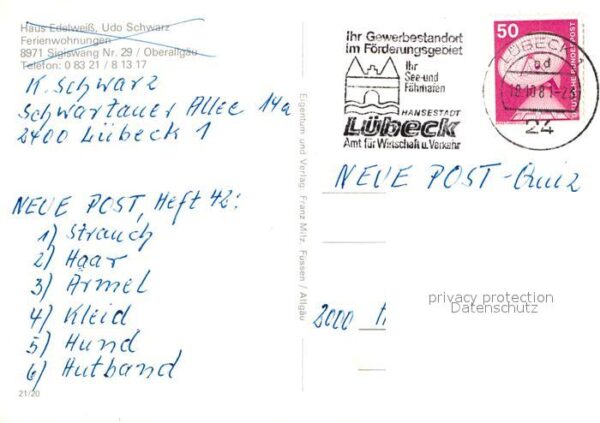 Haus Edelweiß, Udo Schwarz
Ferienwohnungen
8971 Sigiswang Nr. 29 / Oberallgäu
Telefon: 0 83 21 / 8 13 17
K. Schwarz
Schwartauer Allee 14a
2400 Lübeck 1
NEUE POST, Heft 42:
1) Strauch
2) Haar
3) Ärmel
4) Kleid
5) Hund
6) Hutband
21/20
Eigentum und Verlag: Franz Milz, Füssen / Allgäu
Ihr Gewerbestandort
im Förderungsgebiet
Ihr
See-und
Fährhafen
HANSESTADT
Lübeck
Amt für Wirtschaft u. Verkehr
50
DEUTSCHE BUNDESPOST
LÜBECK
gd
19.10.81-23
24
NEUE POST-Quiz
privacy protection
Datenschutz
2000